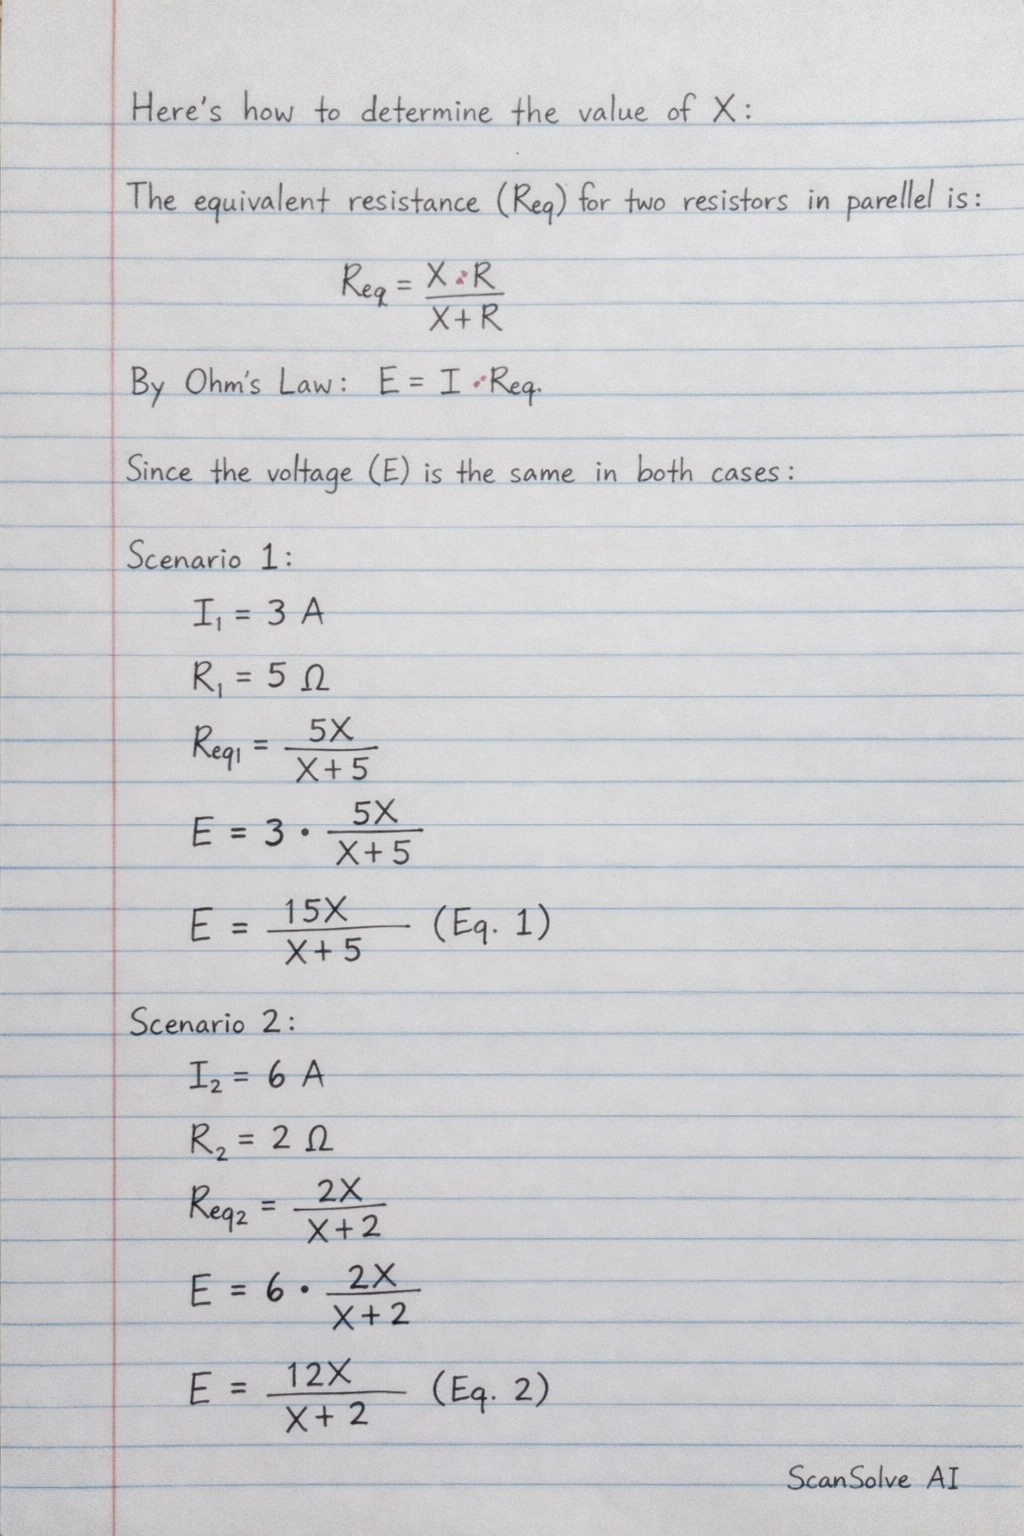 Here's how to determine the value of X:
The equivalent resistance (Req) for two resistors in parellel is:
Req = X · R / X + R
By Ohm's Law: E = I · Req.
Since the voltage (E) is the same in both cases:
Scenario 1:
I₁ = 3 A
R₁ = 5 Ω
Req₁ = 5X / X + 5
E = 3 · 5X / X + 5
E = 15X / X + 5 (Eq. 1)
Scenario 2:
I₂ = 6 A
R₂ = 2 Ω
Req₂ = 2X / X + 2
E = 6 · 2X / X + 2
E = 12X / X + 2 (Eq. 2)
ScanSolve AI